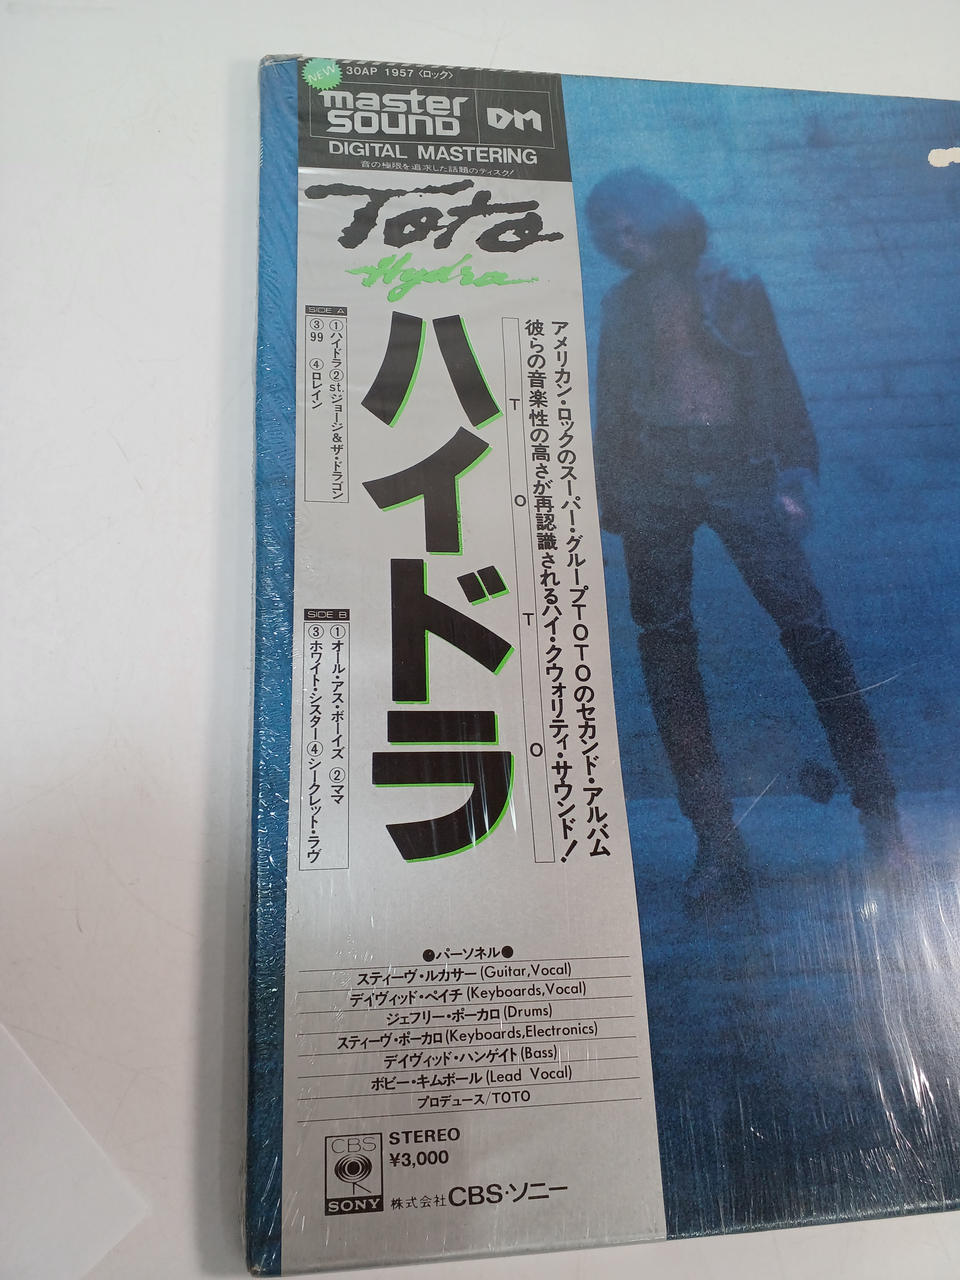 NEW
30AP 1957〈ロック〉
master
SOUND
DM
DIGITAL MASTERING
音の極限を追求した話題のディスク!
Toto
Hydra
ハイドラ
アメリカン・ロックのスーパー・グループTOTOのセカンド・アルバム
彼らの音楽性の高さが再認識されるハイ・クウォリティ・サウンド!
TOTO
SIDE A
①ハイドラ ②st.ジョージ&ザ・ドラゴン
③99 ④ロレイン
SIDE B
①オール・アス・ボーイズ ②ママ
③ホワイト・シスター ④シークレット・ラヴ
●パーソネル●
スティーヴ・ルカサー(Guitar,Vocal)
デイヴィッド・ペイチ(Keyboards,Vocal)
ジェフリー・ポーカロ(Drums)
スティーヴ・ポーカロ(Keyboards,Electronics)
デイヴィッド・ハンゲイト(Bass)
ボビー・キムボール(Lead Vocal)
プロデュース/TOTO
CBS
SONY
STEREO
¥3,000
株式会社CBS・ソニー